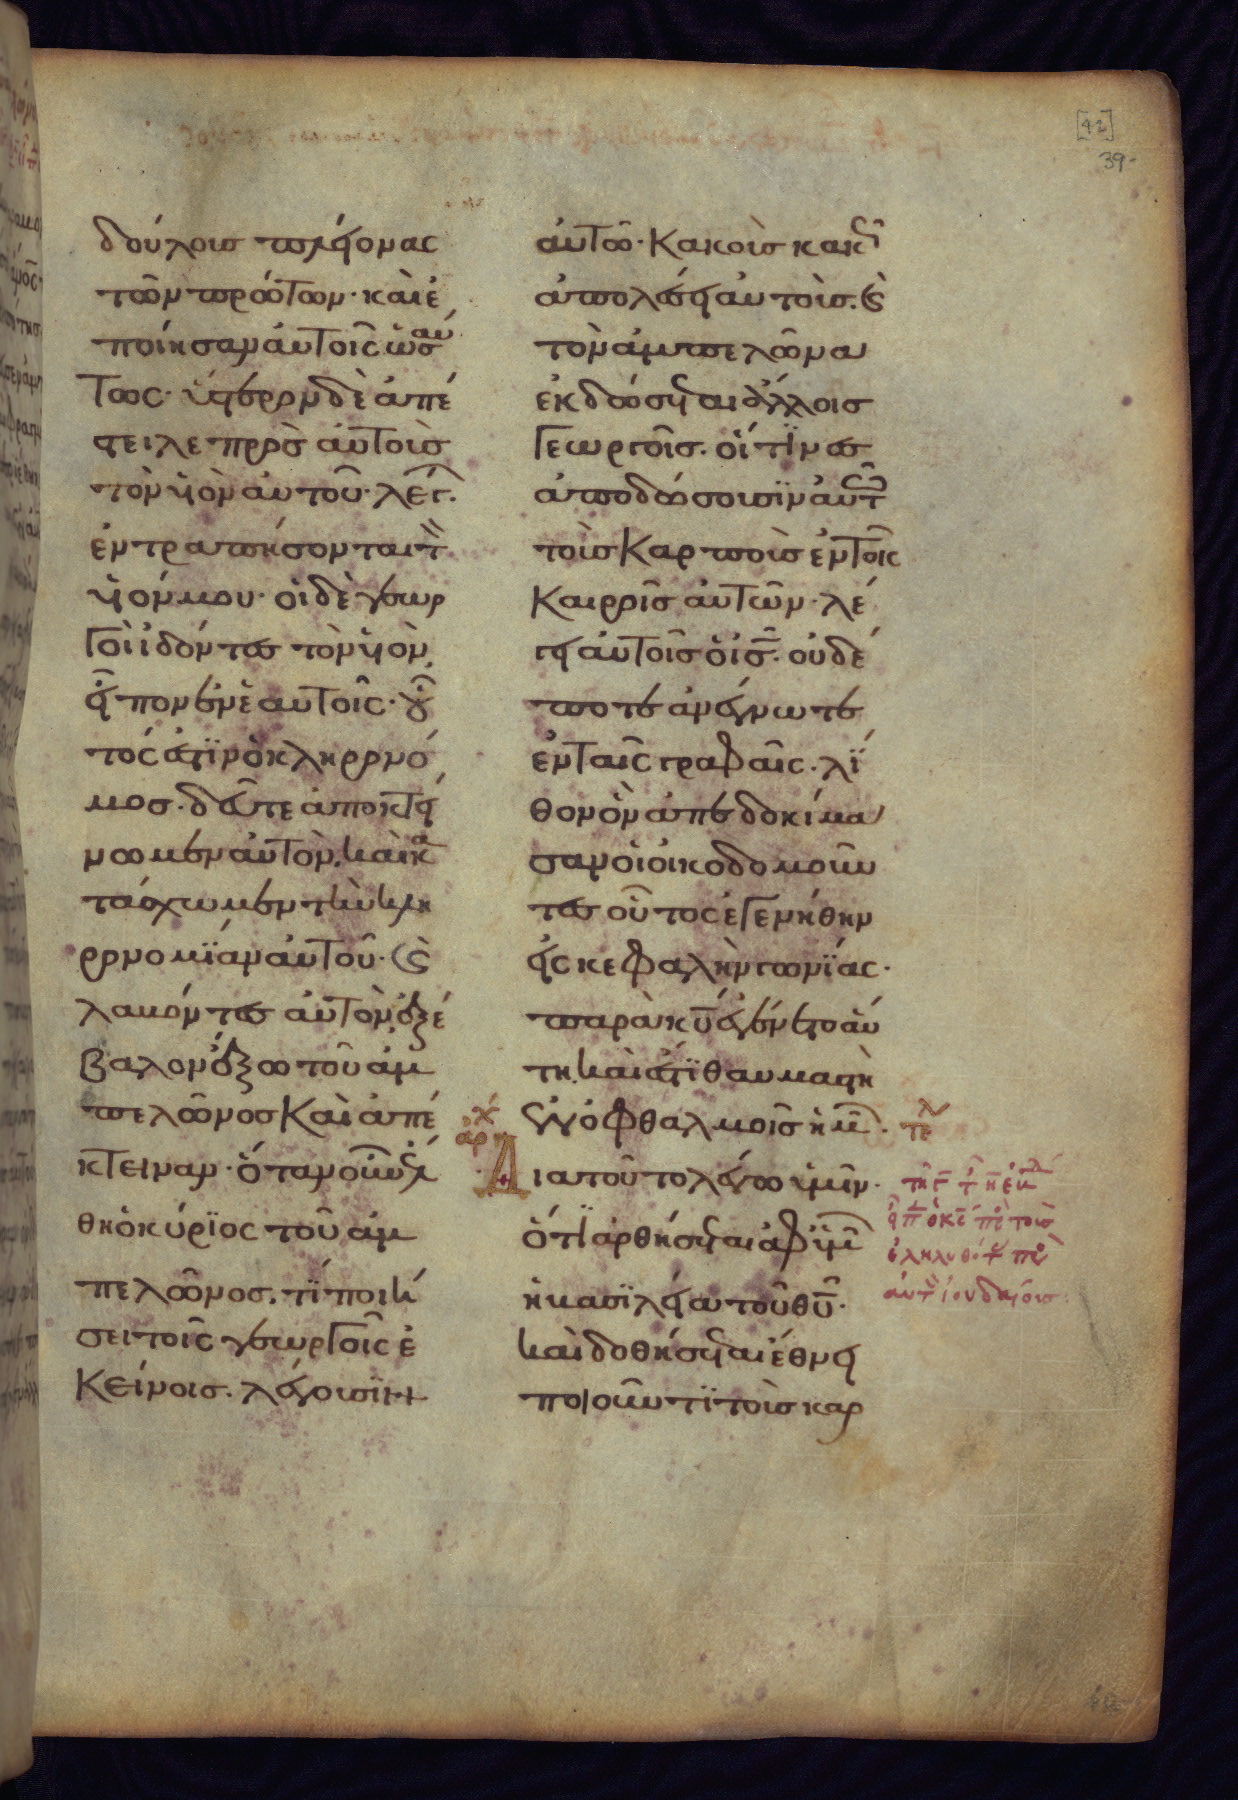 [42]
39
δούλους πλείονας
τῶν πρώτων· καὶ ἐ
ποίησαν αὐτοῖς ὡσαύ
τως· ὕστερον δὲ ἀπέ
στειλε πρὸς αὐτοὺς
τὸν υἱὸν αὐτοῦ· λέγ.
ἐντραπήσονται τὸν
υἱόν μου· οἱ δὲ γεωρ
γοὶ ἰδόντες τὸν υἱὸν,
εἶπον ἐν ἑαυτοῖς· οὗ
τός ἐστϊν ὁ κληρονό
μος· δεῦτε ἀποκτεί
νωμεν αὐτὸν, καὶ κα
τάσχωμεν τὴν κλη
ρονομϊαν αὐτοῦ· καὶ
λαβόντες αὐτὸν ἐξέ
βαλον ἔξω τοῦ ἀμ
πελῶνος καὶ ἀπέ
κτειναν· ὅταν οὖν ἔλ
θη ὁ κύρϊος τοῦ ἀμ
πελῶνος, τϊ ποιή
σει τοῖς γεωργοῖς ἐ
κείνοις· λέγουσϊν
αὐτῶ· κακοὺς κακῶς
ἀπολέσει αὐτούς· καὶ
τὸν ἀμπελῶνα
ἐκδώσεται ἄλλοις
γεωργοῖς· οἵτϊνες
ἀποδώσουσϊν αὐτῶ
τοὺς καρποὺς ἐν τοῖς
καιροῖς αὐτῶν· λέ
γει αὐτοῖς ὁ ις· οὐδέ
ποτε ἀνέγνωτε
ἐν ταῖς γραφαῖς· λϊ
θον ὃν ἀπεδοκίμα
σαν οἱ οἰκοδομοῦν
τες οὗτος ἐγενήθην
εἰς κεφαλὴν γωνϊας·
παρὰ κυ ἐγένετο αὕ
τη, καὶ ἔστϊ θαυμαστὴ
ἐν ὀφθαλμοῖς ἡμῶν·
τε λ
ἀρχ
Διατοῦτο λέγω ὑμῖν·
ὅτϊ ἀρθήσεται ἀφ ὑμῶν
ἡ βασϊλεία τοῦ θυ·
καὶ δοθήσεται ἔθνει
ποιοῦντϊ τοὺς καρ
εἶπ ὁ κς πρὸς τοὺς
ἐληλυθότ πρὸς
αὐτὸν ἰουδαίους